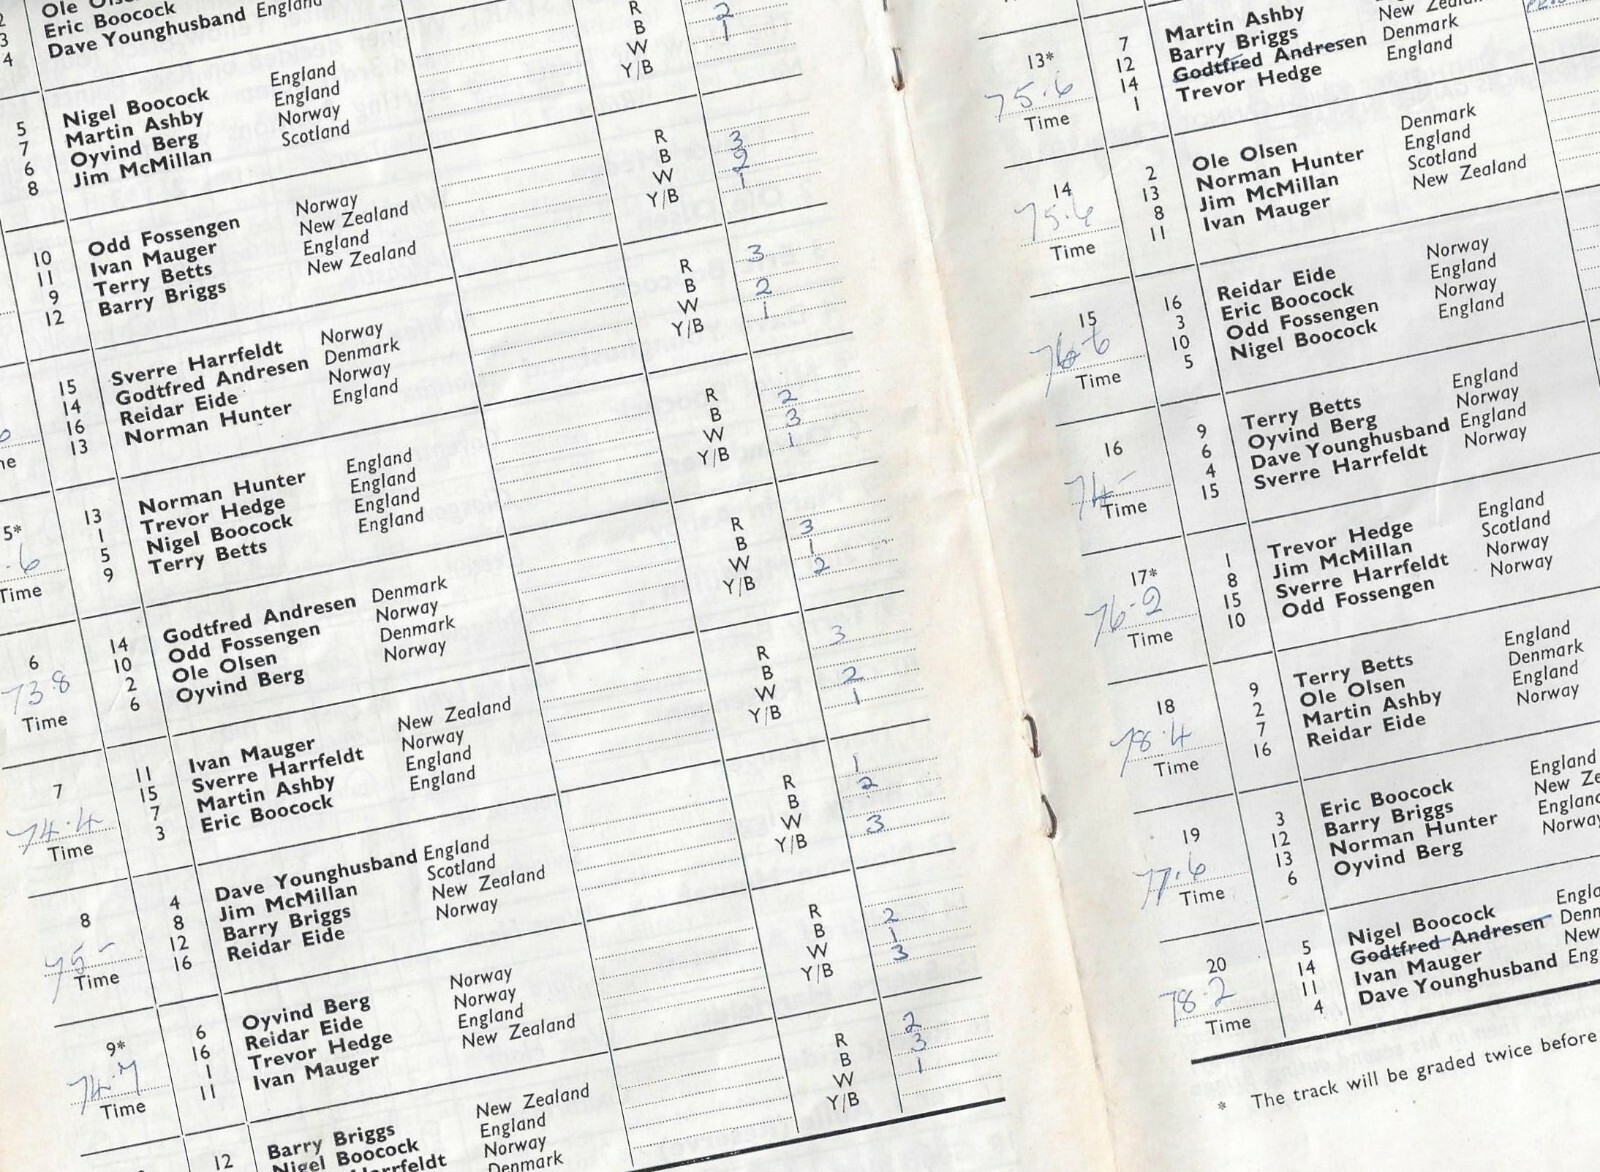 2 Ole Olsen R 2
3 Eric Boocock B 1
4 Dave Younghusband England W
Y/B
5 Nigel Boocock England R 3
7 Martin Ashby England B 2
6 Oyvind Berg Norway W 1
8 Jim McMillan Scotland Y/B
10 Odd Fossengen Norway R 3
11 Ivan Mauger New Zealand B 2
9 Terry Betts England W 1
12 Barry Briggs New Zealand Y/B
15 Sverre Harrfeldt Norway R 2
14 Godtfred Andresen Denmark B 3
16 Reidar Eide Norway W 1
13 Norman Hunter England Y/B
5*
.6
Time
13 Norman Hunter England R 3
1 Trevor Hedge England B 1
5 Nigel Boocock England W 2
9 Terry Betts England Y/B
6
73.8
Time
14 Godtfred Andresen Denmark R 3
10 Odd Fossengen Norway B
2 Ole Olsen Denmark W 2
6 Oyvind Berg Norway Y/B 1
7
74.4
Time
11 Ivan Mauger New Zealand R 1
15 Sverre Harrfeldt Norway B 2
7 Martin Ashby England W
3 Eric Boocock England Y/B 3
8
75-
Time
4 Dave Younghusband England R 2
8 Jim McMillan Scotland B 1
12 Barry Briggs New Zealand W 3
16 Reidar Eide Norway Y/B
9*
74.7
Time
6 Oyvind Berg Norway R 2
16 Reidar Eide Norway B 3
1 Trevor Hedge England W 1
11 Ivan Mauger New Zealand Y/B
12 Barry Briggs New Zealand
Nigel Boocock England
Harrfeldt Norway
Denmark
13*
75.6
Time
7 Martin Ashby
12 Barry Briggs New Zealand
14 Godtfred Andresen Denmark
1 Trevor Hedge England
14
75.6
Time
2 Ole Olsen Denmark
13 Norman Hunter England
8 Jim McMillan Scotland
11 Ivan Mauger New Zealand
15
76.6
Time
16 Reidar Eide Norway
3 Eric Boocock England
10 Odd Fossengen Norway
5 Nigel Boocock England
16
74-
Time
9 Terry Betts England
6 Oyvind Berg Norway
4 Dave Younghusband England
15 Sverre Harrfeldt Norway
17*
76.2
Time
1 Trevor Hedge England
8 Jim McMillan Scotland
15 Sverre Harrfeldt Norway
10 Odd Fossengen Norway
18
78.4
Time
9 Terry Betts England
2 Ole Olsen Denmark
7 Martin Ashby England
16 Reidar Eide Norway
19
77.6
Time
3 Eric Boocock England
12 Barry Briggs New Ze
13 Norman Hunter England
6 Oyvind Berg Norway
20
78.2
Time
5 Nigel Boocock Engla
14 Godtfred Andresen Denn
11 Ivan Mauger New
4 Dave Younghusband Eng
* The track will be graded twice before